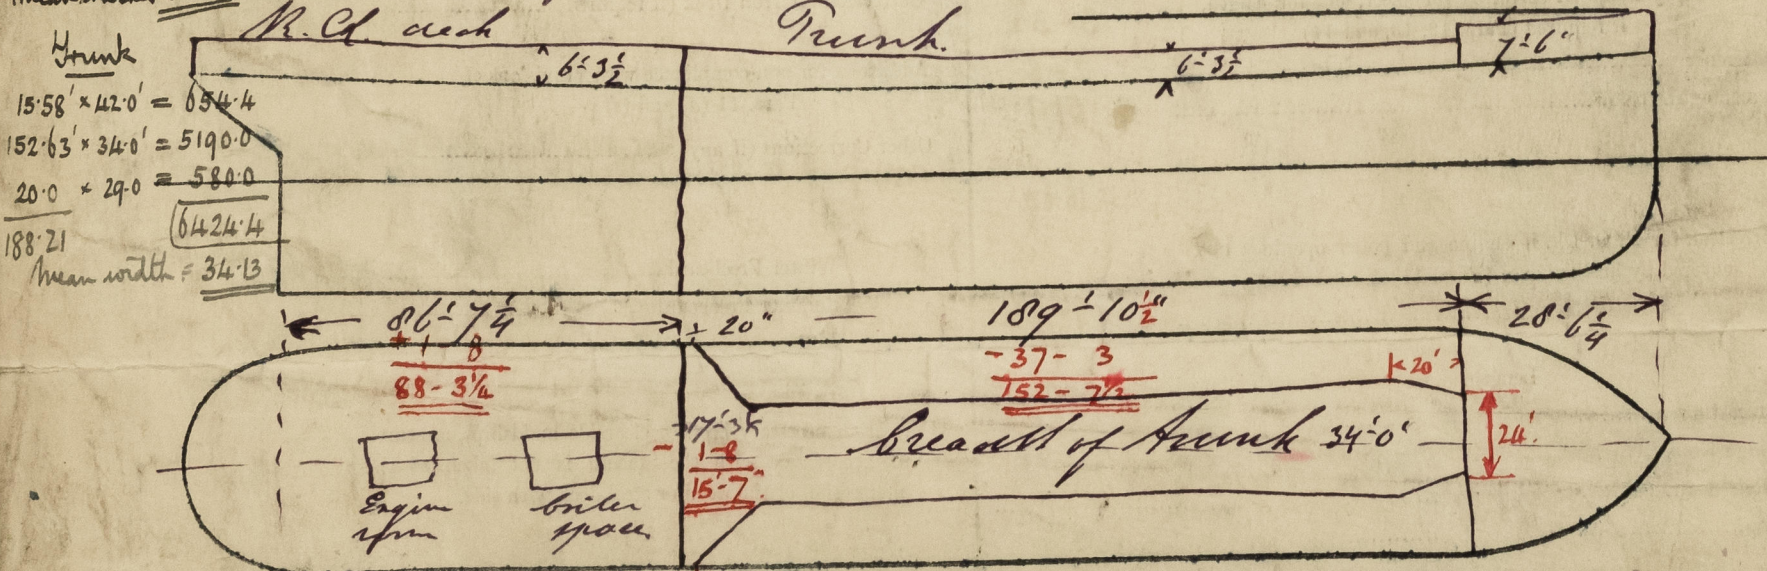 Trunk
15.58' × 42.0' = 654.4
152.63' × 34.0' = 5190.0
20.0 × 29.0 = 580.0
188.21
6424.4
Mean width = 34.13
R. Qd. deck
Trunk.
6'-3½
6'-3½
7'-6"
86'-7¼
+ 1 - 8
88 - 3¼
20"
189'-10½"
- 37 - 3
152 - 7½
28'-6¼
20'
17'-3
- 1-8
15'-7"
breadth of trunk 34'-0'
24'
Engine
room
boiler
space